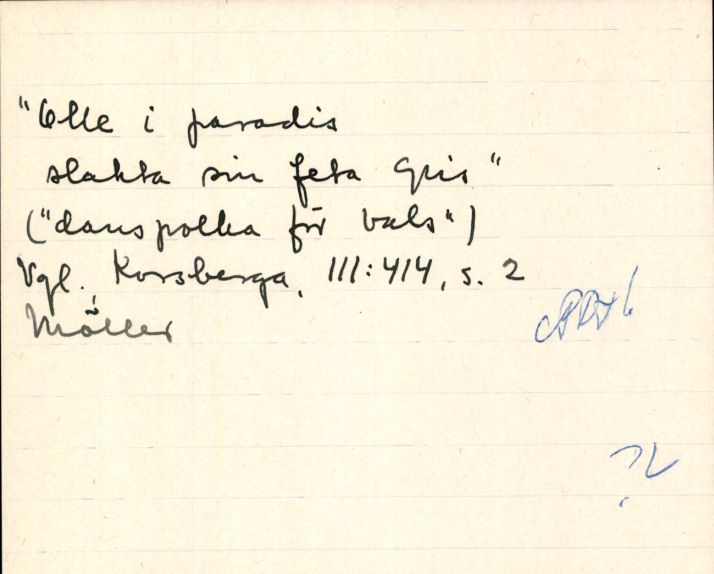 "Olle i paradis
slakta sin feta Gris"
("danspolka för vals")
Vgl. Korsberga, III:414, s. 2
Möller